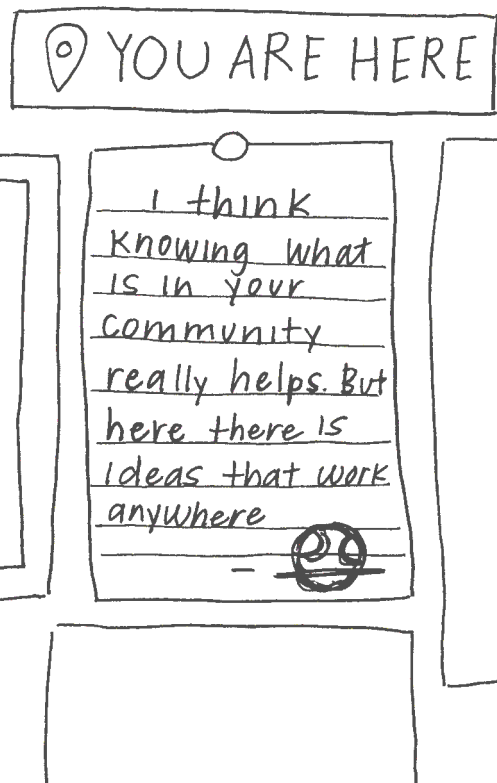 YOU ARE HERE
I think
knowing what
is in your
community
really helps. But
here there is
ideas that work
anywhere